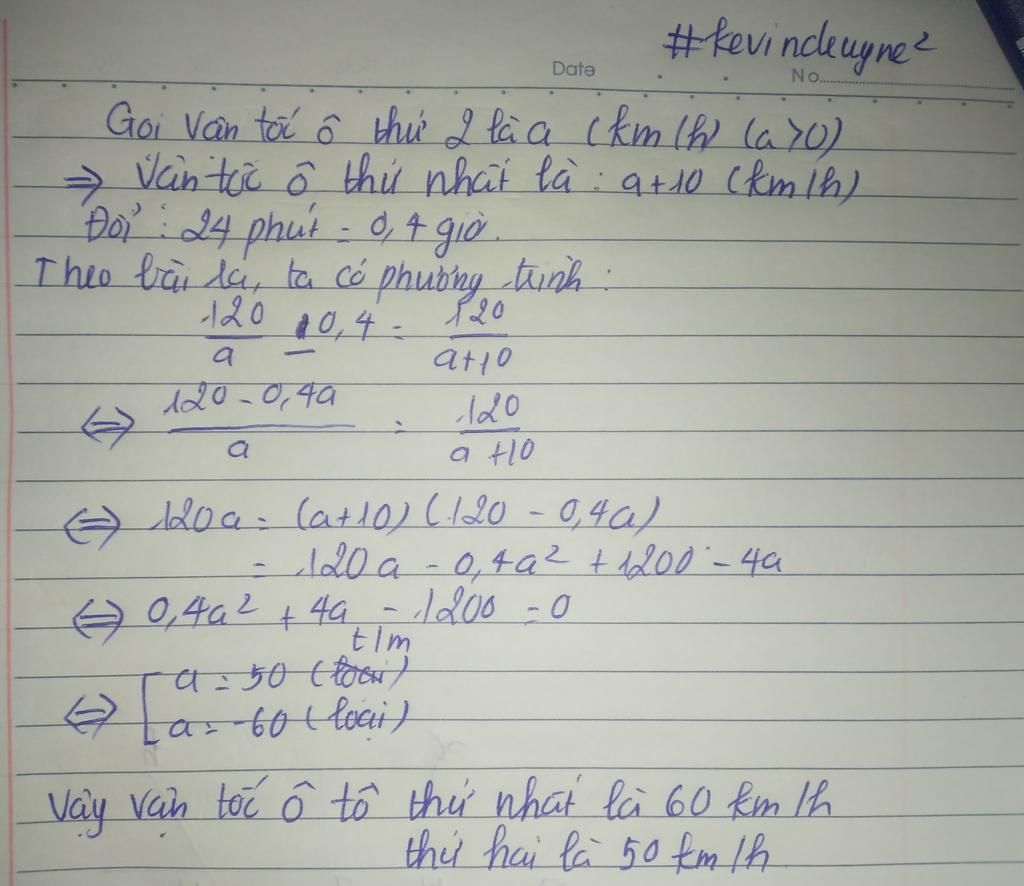 #kevindeuyne²
Date No
Gọi vận tốc ô thứ 2 là a (km/h) (a>0)
⇒ Vận tốc ô thứ nhất là : a+10 (km/h)
Đổi : 24 phút = 0,4 giờ.
Theo bài ra, ta có phương trình :
120/a - 0,4 = 120/(a+10)
⇔ (120 - 0,4a)/a = 120/(a+10)
⇔ 120a = (a+10)(120 - 0,4a)
= 120a - 0,4a² + 1200 - 4a
⇔ 0,4a² + 4a - 1200 = 0
⇔ [ a = 50 (t/m)
a = -60 (loại)
Vậy vận tốc ô tô thứ nhất là 60 km/h
thứ hai là 50 km/h